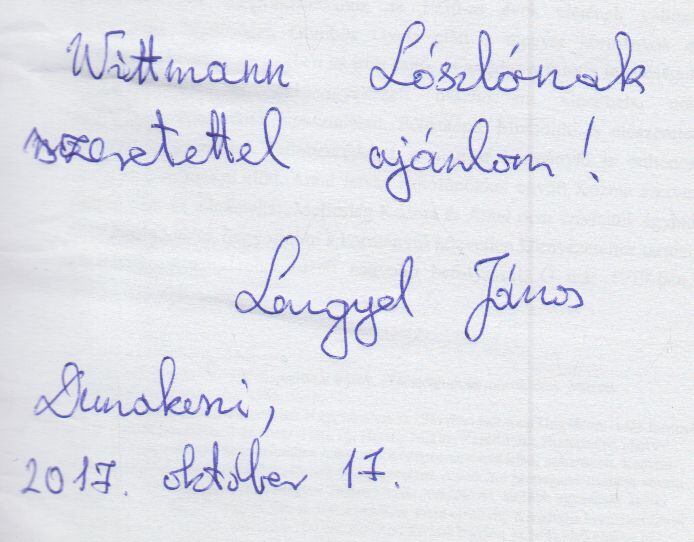 Wittmann Lászlónak
szeretettel ajánlom!
Lengyel János
Dunakeszi,
2017. október 17.